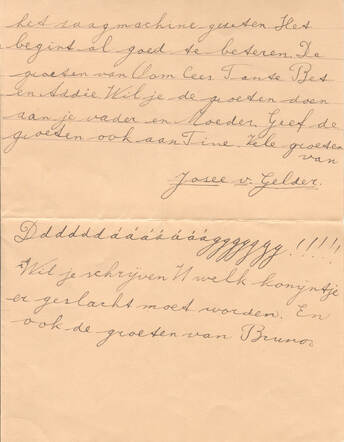 het zaagmachine gezeten. Het
begint al goed te beteren. De
groeten van Oom Cees Tante Bet
en Addie. Wil je de groeten doen
aan je vader en Moeder. Geef de
groeten ook aan Tine. Vele groeten
van
Josee v. Gelder.
Ddddddááááááággggggg!!!!!
Wil je schrijven welk konijntje
er geslacht moet worden. En
ook de groeten van Bruno.